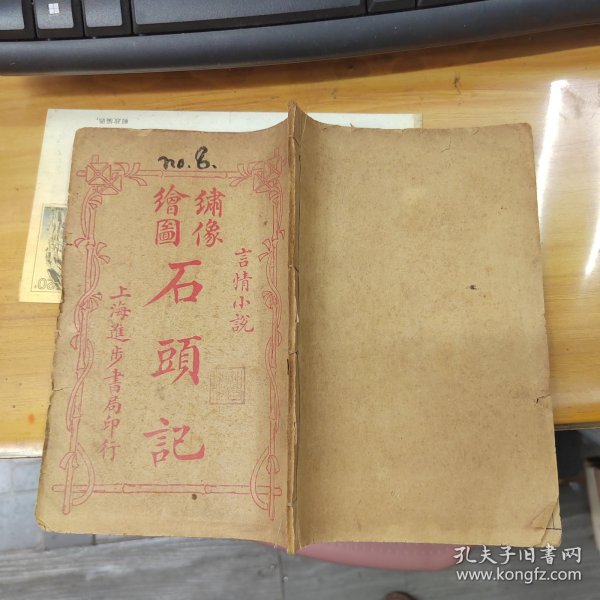 no. 8.
繡像
繪圖
言情小說
石頭記
上海進步書局印行
孔夫子旧书网
www.kongfz.com